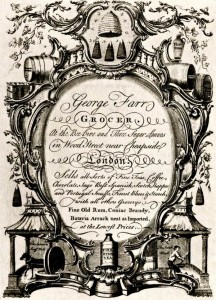 George Farr
GROCER,
At the Bee-hive and Three Sugar Loaves
in Wood Street near Cheapside
London,
Sells all Sorts of Fine Teas, Coffee,
Chocolate, Sago, Rice, Spanish, Scotch, Rappee
and Portugal Snuffs, Finest Blues & Starch,
with all other Grocery.
Fine Old Rum, Coniac Brandy,
Batavia Arrack neat as Imported,
at the Lowest Prices.